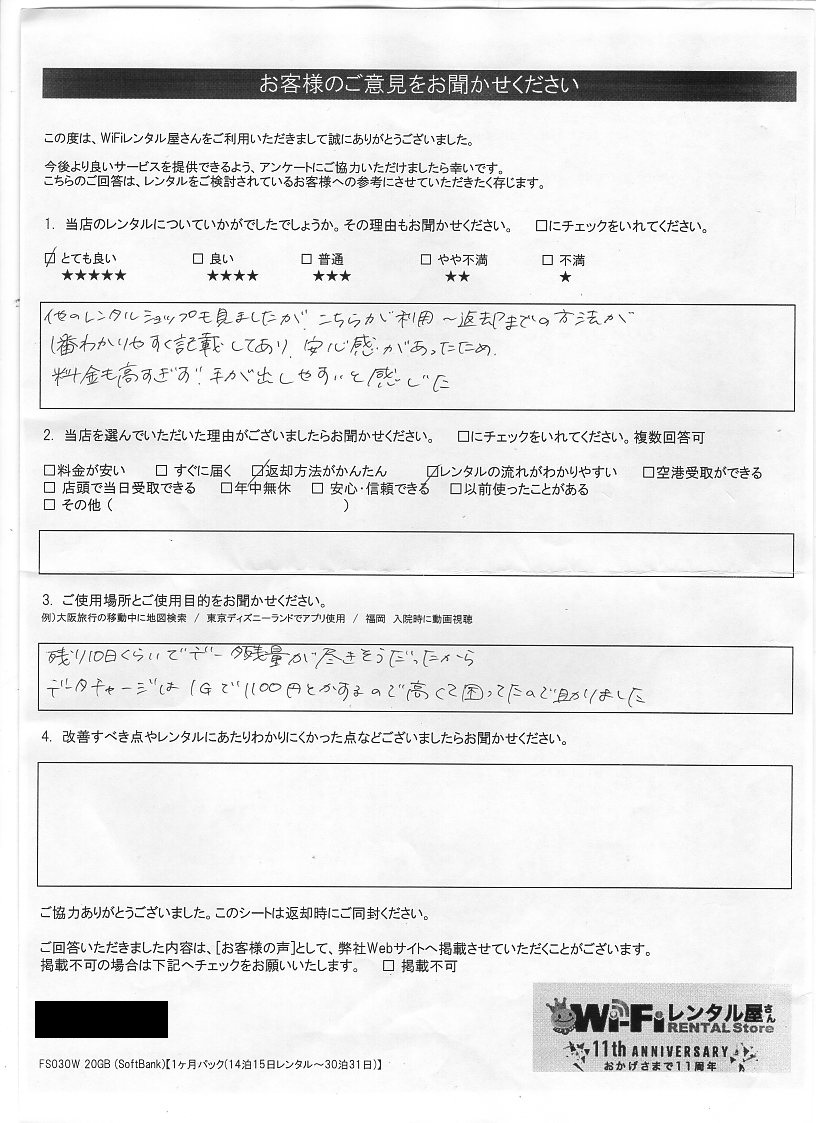 お客様のご意見をお聞かせください
この度は、WiFiレンタル屋さんをご利用いただきまして誠にありがとうございました。
今後より良いサービスを提供できるよう、アンケートにご協力いただけましたら幸いです。
こちらのご回答は、レンタルをご検討されているお客様への参考にさせていただきたく存じます。
1. 当店のレンタルについていかがでしたでしょうか。その理由もお聞かせください。 □にチェックをいれてください。
☑ とても良い □ 良い □ 普通 □ やや不満 □ 不満
★★★★★ ★★★★ ★★★ ★★ ★
他のレンタルショップも見ましたが、こちらが利用〜返却までの方法が
1番わかりやすく記載してあり、安心感があったため。
料金も高すぎず、手が出しやすいと感じた
2. 当店を選んでいただいた理由がございましたらお聞かせください。 □にチェックをいれてください。複数回答可
□料金が安い □ すぐに届く ☑返却方法がかんたん ☑レンタルの流れがわかりやすい □空港受取ができる
□ 店頭で当日受取できる □年中無休 □ 安心・信頼できる □以前使ったことがある
□ その他 ( )
3. ご使用場所とご使用目的をお聞かせください。
例)大阪旅行の移動中に地図検索 / 東京ディズニーランドでアプリ使用 / 福岡 入院時に動画視聴
残り10日くらいでデータ残量が尽きそうだったから
データチャージは1Gで1100円とかするので高くて困ってたので助かりました
4. 改善すべき点やレンタルにあたりわかりにくかった点などございましたらお聞かせください。
ご協力ありがとうございました。このシートは返却時にご同封ください。
ご回答いただきました内容は、[お客様の声]として、弊社Webサイトへ掲載させていただくことがございます。
掲載不可の場合は下記へチェックをお願いいたします。 □ 掲載不可
Wi-Fiレンタル屋さん
RENTAL Store
11th ANNIVERSARY
おかげさまで11周年
FS030W 20GB (SoftBank)【1ヶ月パック(14泊15日レンタル〜30泊31日)】